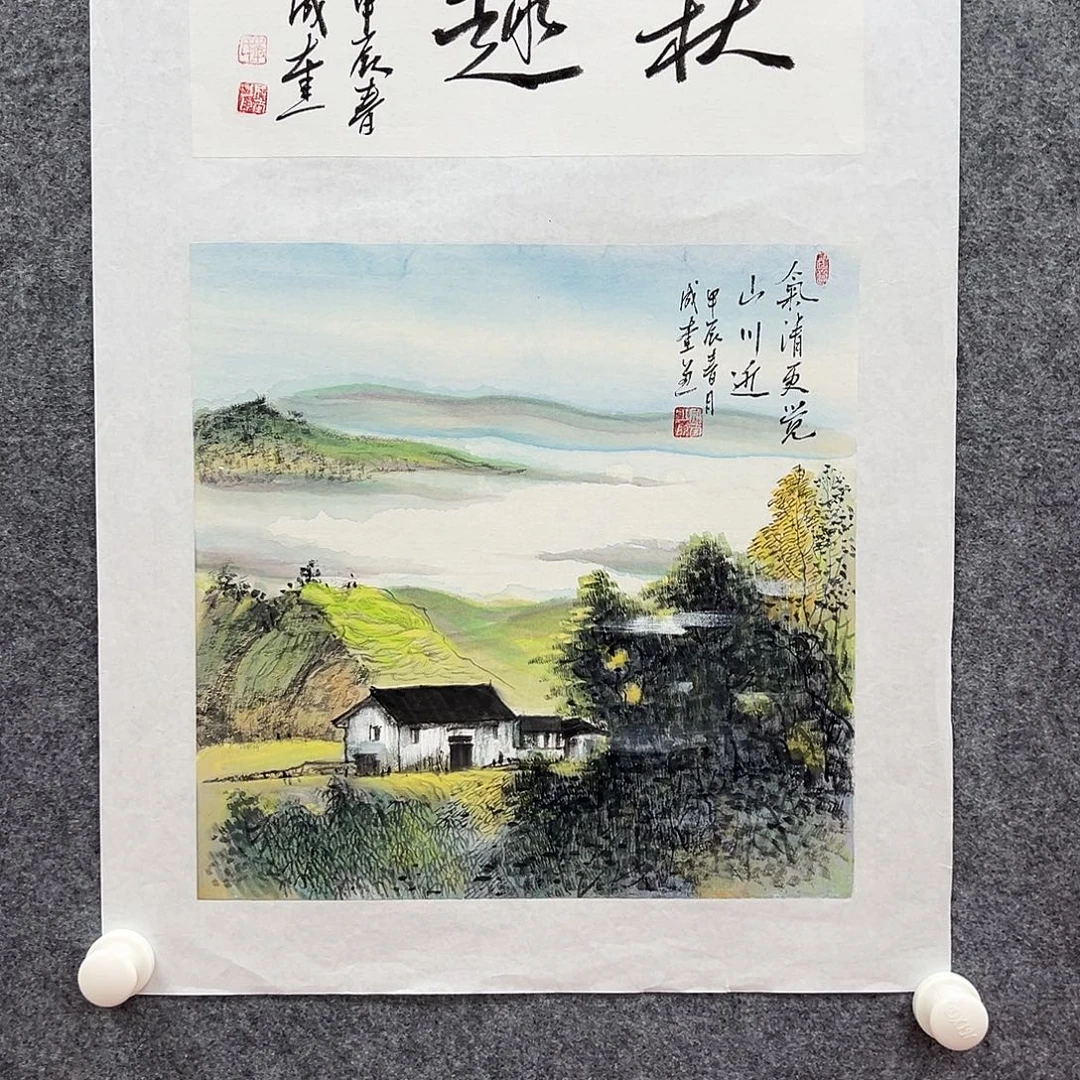 秋趣
甲辰春
成奎
氣清更觉
山川近
甲辰春月
成奎